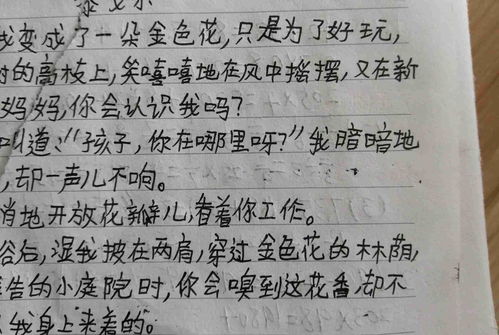 泰戈尔
我变成了一朵金色花,只是为了好玩,
树的高枝上,笑嘻嘻地在风中摇摆,又在新
妈妈,你会认识我吗?
叫道:“孩子,你在哪里呀?”我暗暗地
,却一声儿不响。
悄地开放花瓣儿,看着你工作。
浴后,湿我披在两肩,穿过金色花的林荫,
告的小庭院时,你会嗅到这花香,却不
我身上来着的。